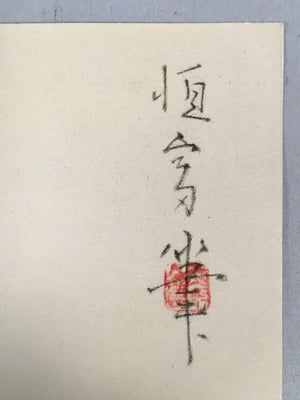 恒富筆